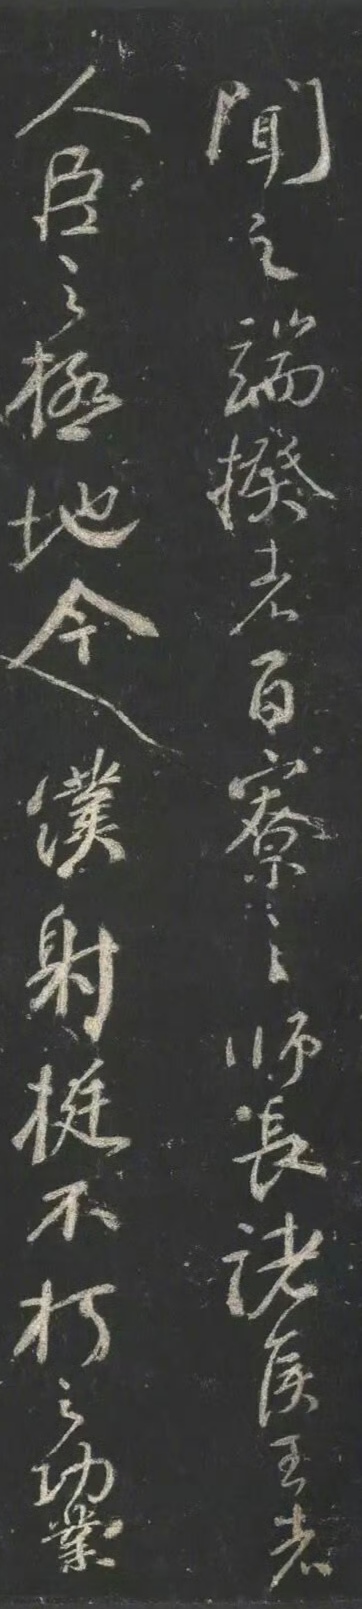 聞之端揆者百寮之師長諸侯王者
人臣之極地今僕射挺不朽之功業